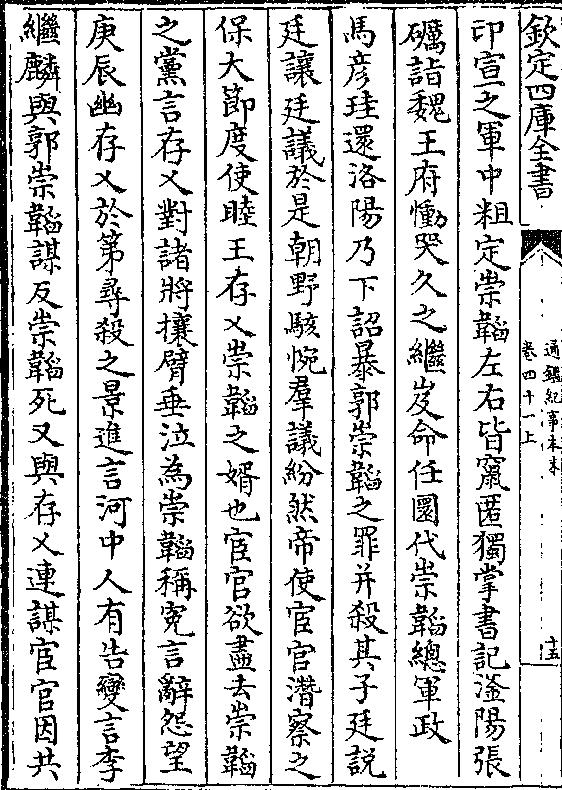 欽定四庫全書
通鑑紀事本末
卷四十一上
十五
印宣之軍中粗定崇韜左右皆竄匿獨掌書記滏陽張
礪詣魏王府慟哭久之繼岌命任圜代崇韜總軍政
馬彥珪還洛陽乃下詔暴郭崇韜之罪并殺其子廷說
廷讓廷議於是朝野駭惋羣議紛然帝使宦官潛察之
保大節度使睦王存乂崇韜之婿也宦官欲盡去崇韜
之黨言存乂對諸將攘臂垂泣為崇韜稱冤言辭怨望
庚辰幽存乂於第尋殺之景進言河中人有告變言李
繼麟與郭崇韜謀反崇韜死又與存乂連謀宦官因共